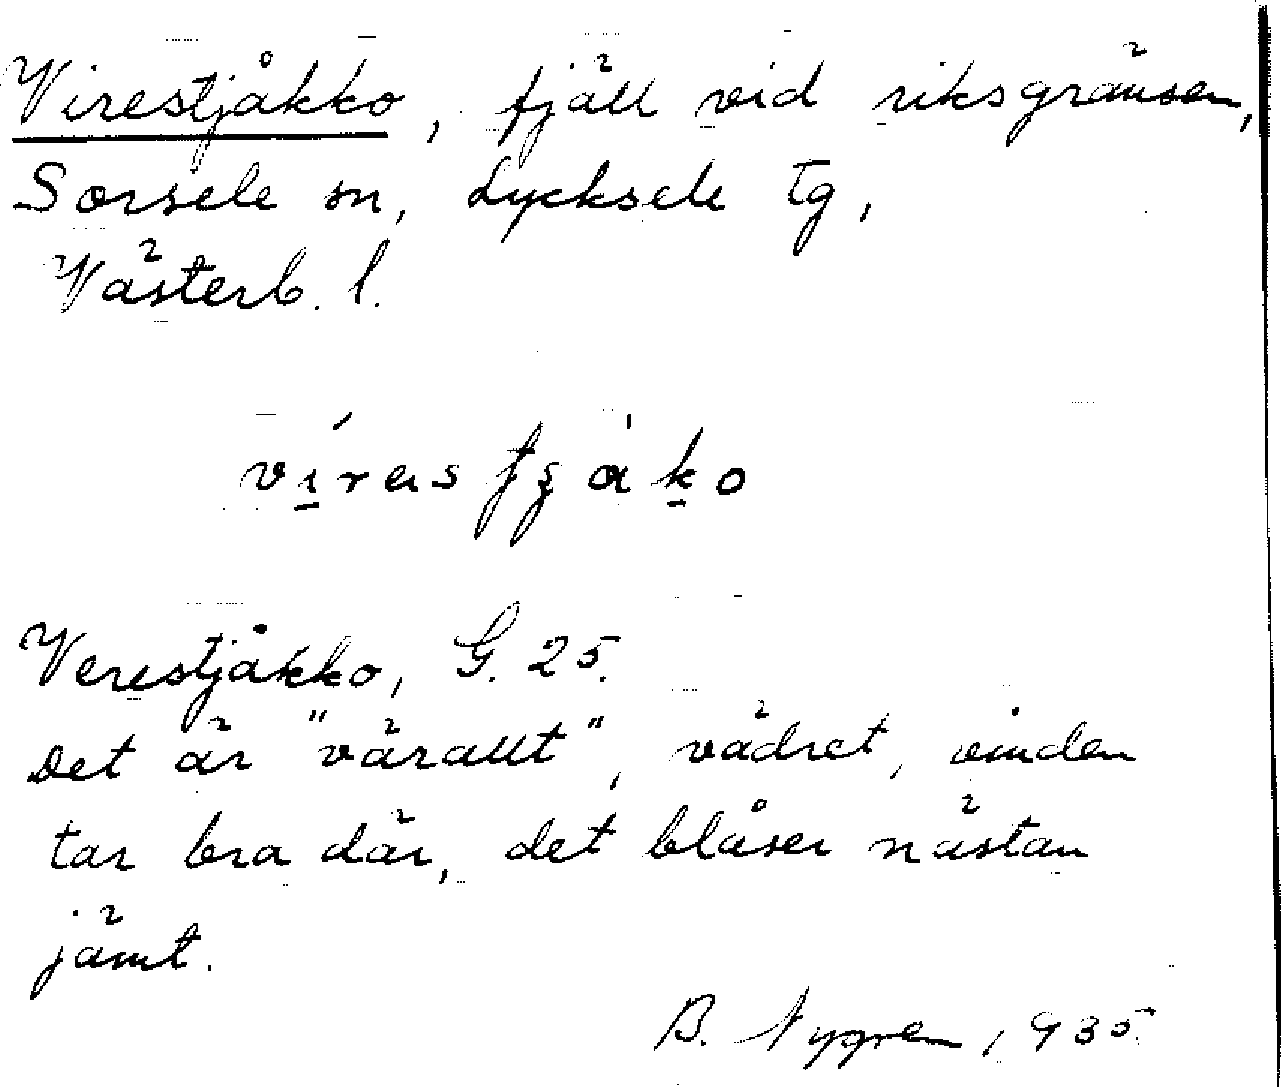 Virestjåkko, fjäll vid riksgränsen,
Sorsele sn, Lycksele tg,
Västerb. l.
Verestjåkko, G. 25.
Det är "värallt", vädret, vinden
tar bra där, det blåser nästan
jämt.
B. Nygren, 1935